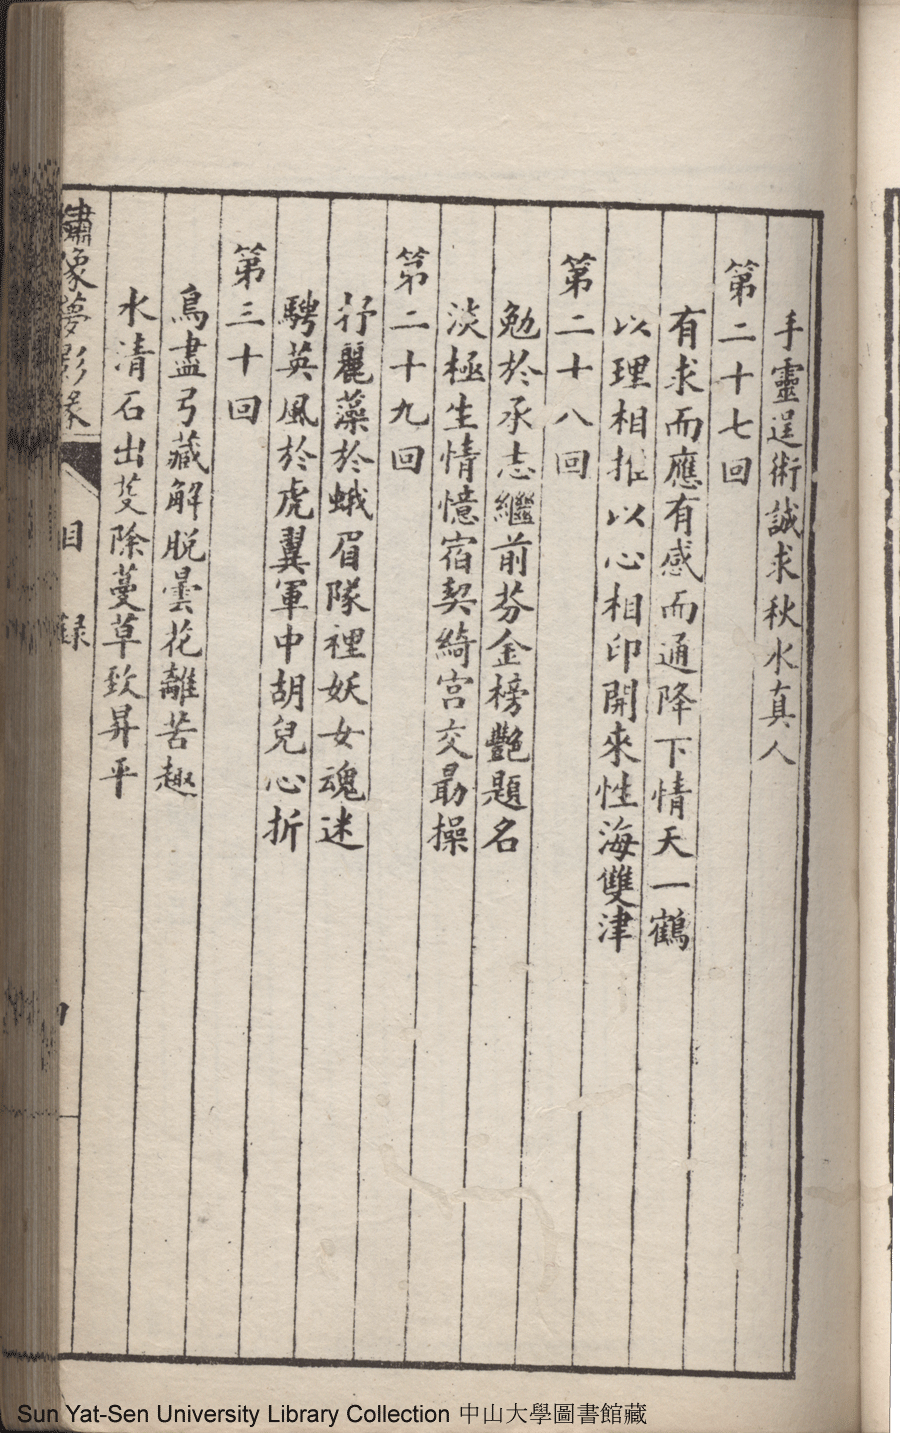 手靈逞術誠求秋水真人
第二十七回
有求而應有感而通降下情天一鶴
以理相推以心相印開來性海雙津
第二十八回
勉於承志繼前芬金榜艷題名
淡極生情憶宿契綺宮交勗操
第二十九回
抒麗藻於蛾眉隊裡妖女魂迷
騁英風於虎翼軍中胡兒心折
第三十回
鳥盡弓藏解脫曇花離苦趣
水清石出芟除蔓草致昇平
繡像夢影緣
目錄
Sun Yat-Sen University Library Collection 中山大學圖書館藏